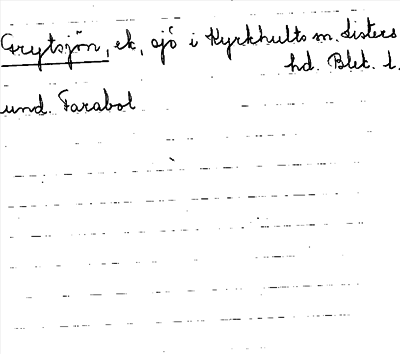 Grytsjön, ek, sjö i Kyrkhults sn. Listers
hd. Blek. l.
und. Farabol